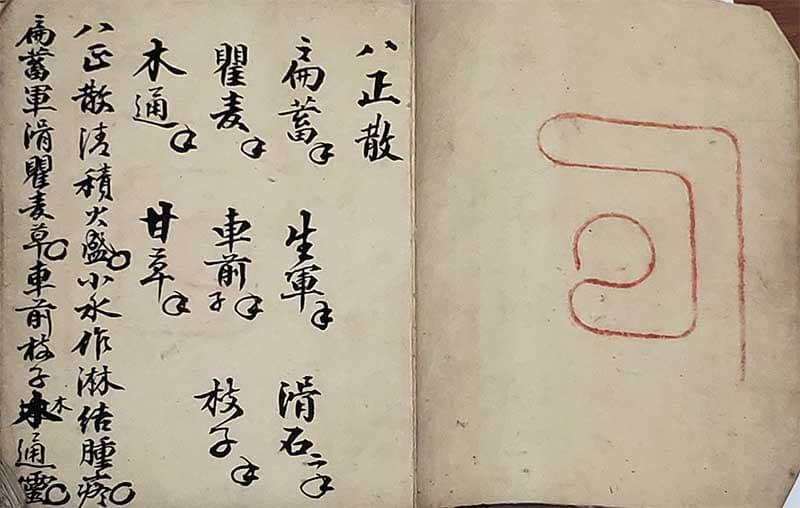 八正散
扁蓄 生軍 滑石二
瞿麦 車前子 枝子
木通 甘草
八正散清積火盛小水作淋结腫疼
扁蓄軍滑瞿麦草車前枝子木通靈